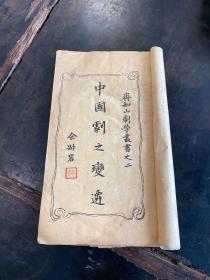 齊如山劇學叢書之二
中國劇之變遷
余叔岩